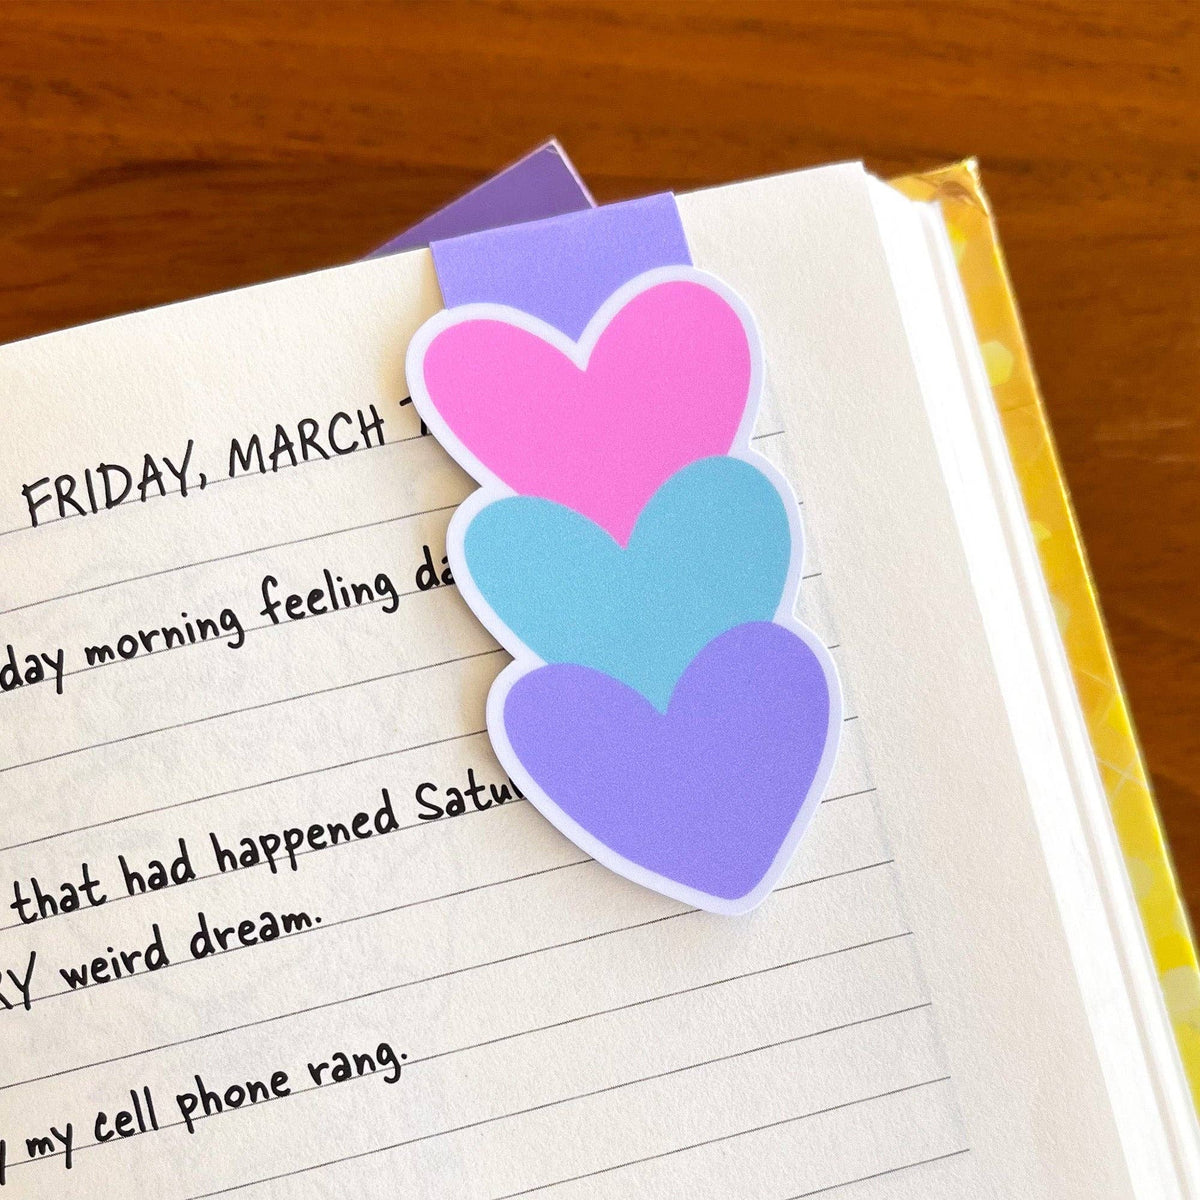 FRIDAY, MARCH
day morning feeling
that had happened
weird dream.
my cell phone rang.